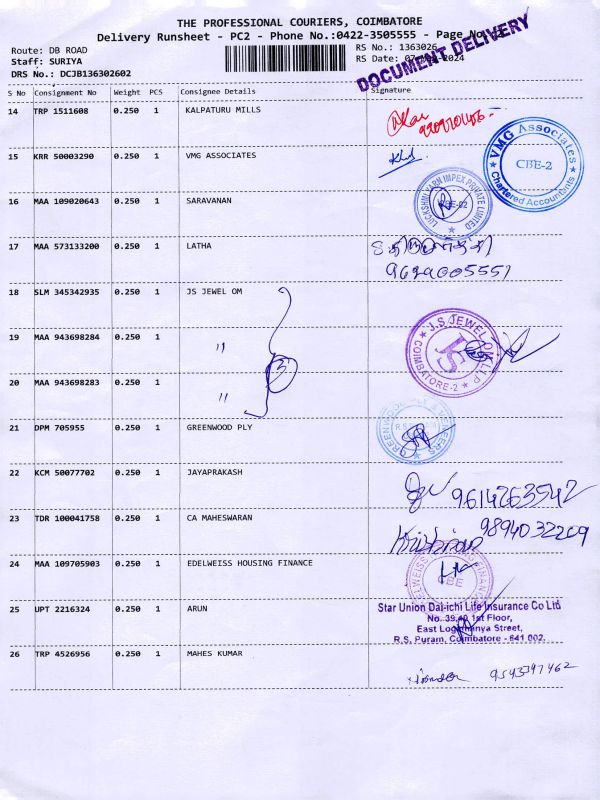 THE PROFESSIONAL COURIERS, COIMBATORE
Delivery Runsheet - PC2 - Phone No.:0422-3505555 - Page No.
Route: DB ROAD
RS No.: 1363026
Staff: SURIYA
RS Date: 07- -2024
DRS No.: DCJB136302602
DOCUMENT DELIVERY
S No Consignment No Weight PCS Consignee Details Signature
14 TRP 1511608 0.250 1 KALPATURU MILLS
15 KRR 50003290 0.250 1 VMG ASSOCIATES
VMG Associates
CBE-2
Chartered Accountants
16 MAA 109020643 0.250 1 SARAVANAN
LUCKSHIN YARN IMPEX PRIVATE LIMITED
17 MAA 573133200 0.250 1 LATHA
9629005551
18 SLM 345342935 0.250 1 JS JEWEL OM
19 MAA 943698284 0.250 1 "
J.S JEWEL
JS
COIMBATORE-2
20 MAA 943698283 0.250 1 "
3
21 DPM 705955 0.250 1 GREENWOOD PLY
GREENWOOD PLY & VENEERS
22 KCM 50077702 0.250 1 JAYAPRAKASH
9614263542
23 TDR 100041758 0.250 1 CA MAHESWARAN
9894032209
24 MAA 109705903 0.250 1 EDELWEISS HOUSING FINANCE
EDELWEISS HOUSING FINANCE
CBE
25 UPT 2216324 0.250 1 ARUN
Star Union Dai-ichi Life Insurance Co Ltd
No. 39,40 1st Floor,
East Street,
R.S. Puram, Coimbatore - 641 002.
26 TRP 4526956 0.250 1 MAHES KUMAR
9543397462